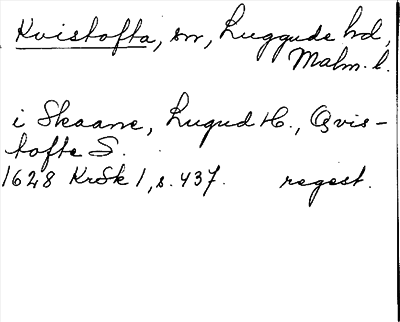 Kvistofta, sn, Luggude hd,
Malm. l.
i Skaane, Lugud H., Qvis-
tofte S.
1628 KrSk 1, s. 437. regest.